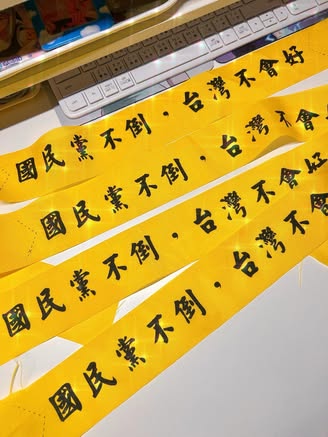 國民黨不倒，台灣不會好
國民黨不倒，台灣不會
國民黨不倒，台灣不會好
國民黨不倒，台灣不會